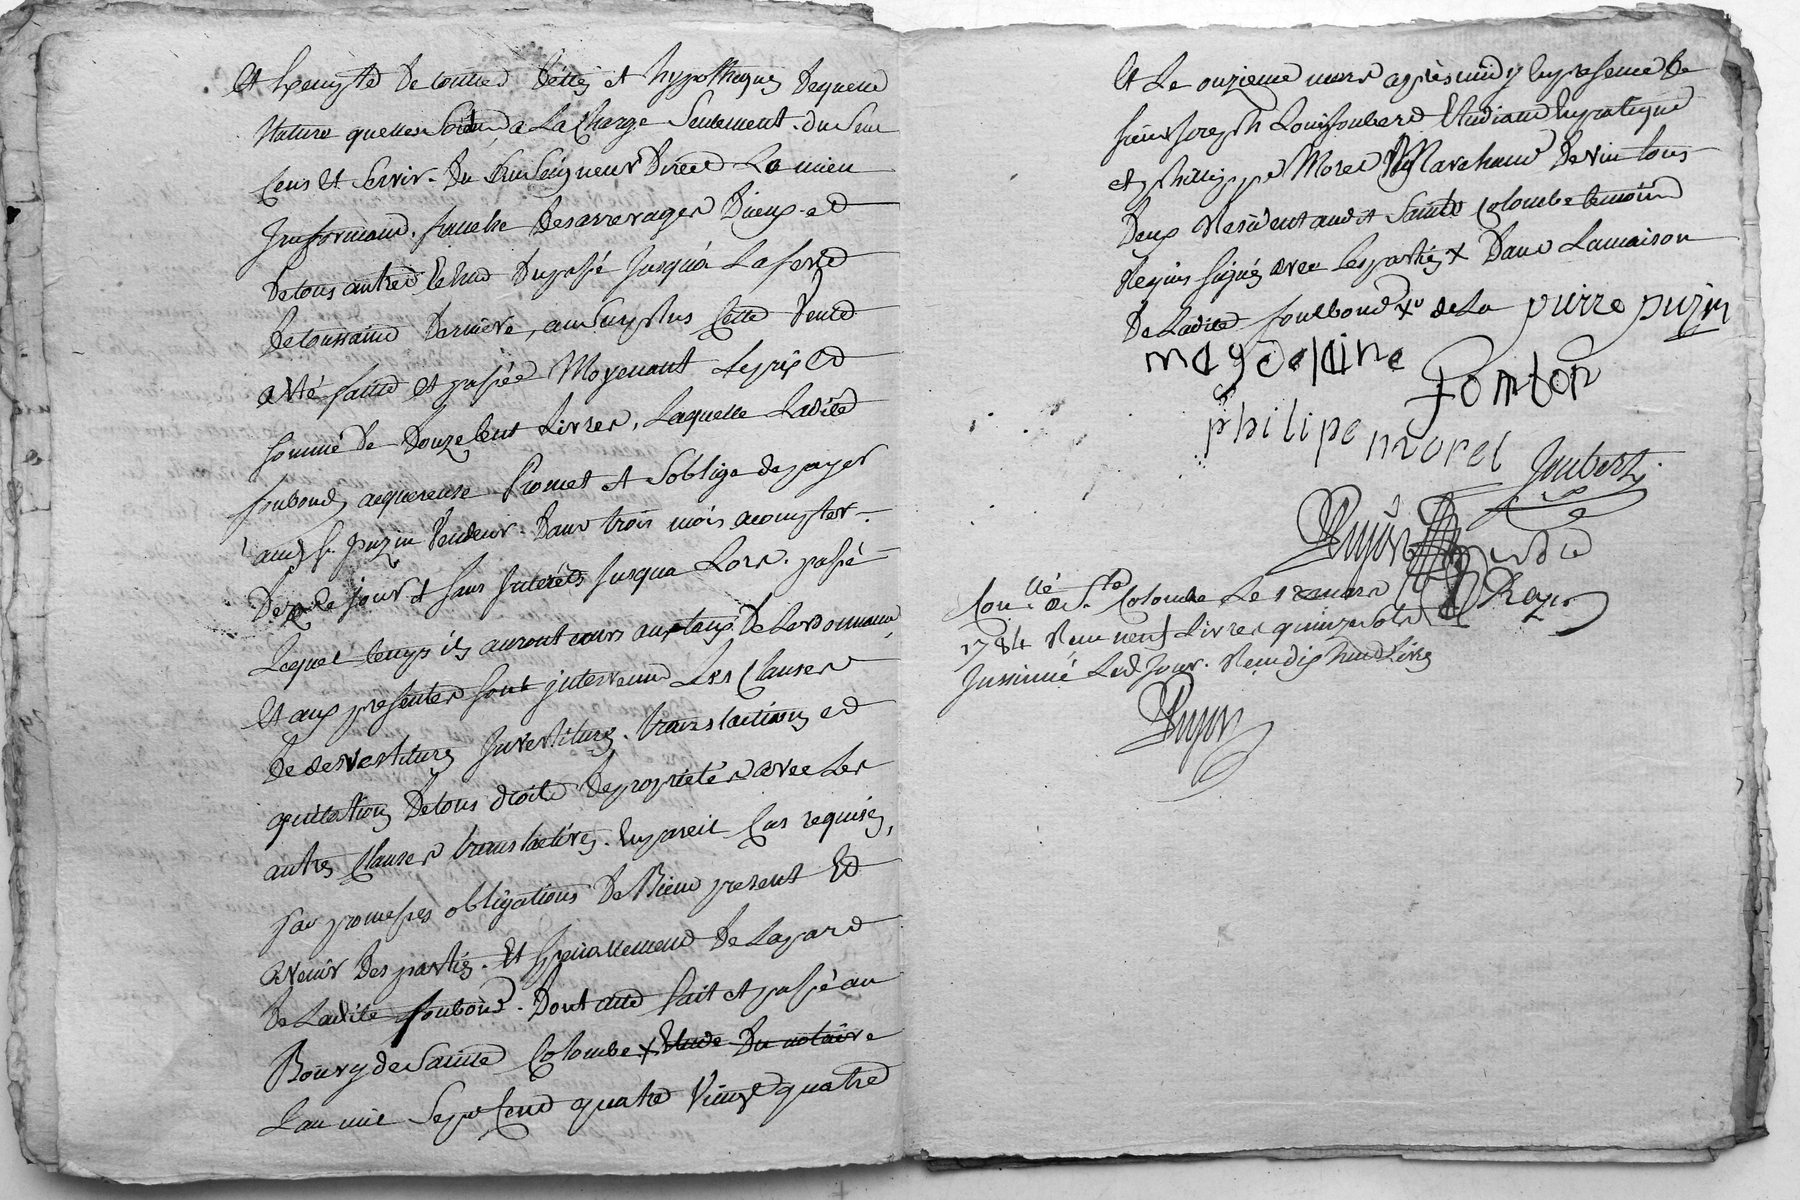 Et Exempte de toutes dettes et hypotheques de quelle
Nature quelles soient a La Charge Seulement du Seul
Cens et Servis du Seigneur Direct Le mieu
Informant, franche des arrerages Dieux et
de tous autres du passé Jusqu'a La feste
de toussaint derniere, au Surplus Cette Vente
a eté faitte et passée Moyenant Le prix et
somme de Douze Cent Livres, Laquelle Ladite
fonbond acquereuse Promet et Soblige de payer
aud. Sr. puzin Vendeur Dans trois mois a compter
De Ce jour et sans Interets Jusqua Lors, passé
Lequel temps ils auront cours au taux De Lordonnance,
Et aux presentes sont intervenu Les Clauses
De devestiture Investiture translations et
quitations De tous droits de proprietés avec Les
autres Clauses translatives En pareil Cas requises,
par promesses obligations De Bien present Et
avenir Des parties Et Specialement De La part
de Ladite fonbond. Dont acte fait et passé au
Bourg de Sainte Colombe x Etude Du notaire
Lan mil Sept Cent quatre Vingt quatre
Et Le onzieme mars après midy En presence de
sieur Joseph Louis Joubert Etudiant En pratique
et philippe Morel Marchand De vin tous
Deux Residents audit Sainte Colombe temoins
Requis signés avec Les parties x Dans La maison
De Ladite fonlbond de La pierre puzin
magdelaine fonlbon
philipe morel Joubert
Pujon
Con.llé a Ste. Colombe Le 12 mars
1784 Reçu neuf Livres quinze Sols
Insinué Led. Jour. Reçu dix huit Livres
Pujon